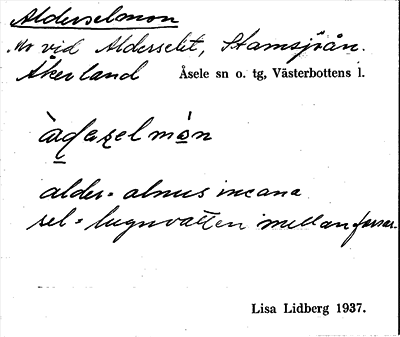 Alderselmon
Mo vid Alderselet, Stamsjöån.
Åkerland Åsele sn o. tg, Västerbottens l.
àdaṣelmòn
alder = alnus incana
sel = lugnvatten mellan forsar.
Lisa Lidberg 1937.